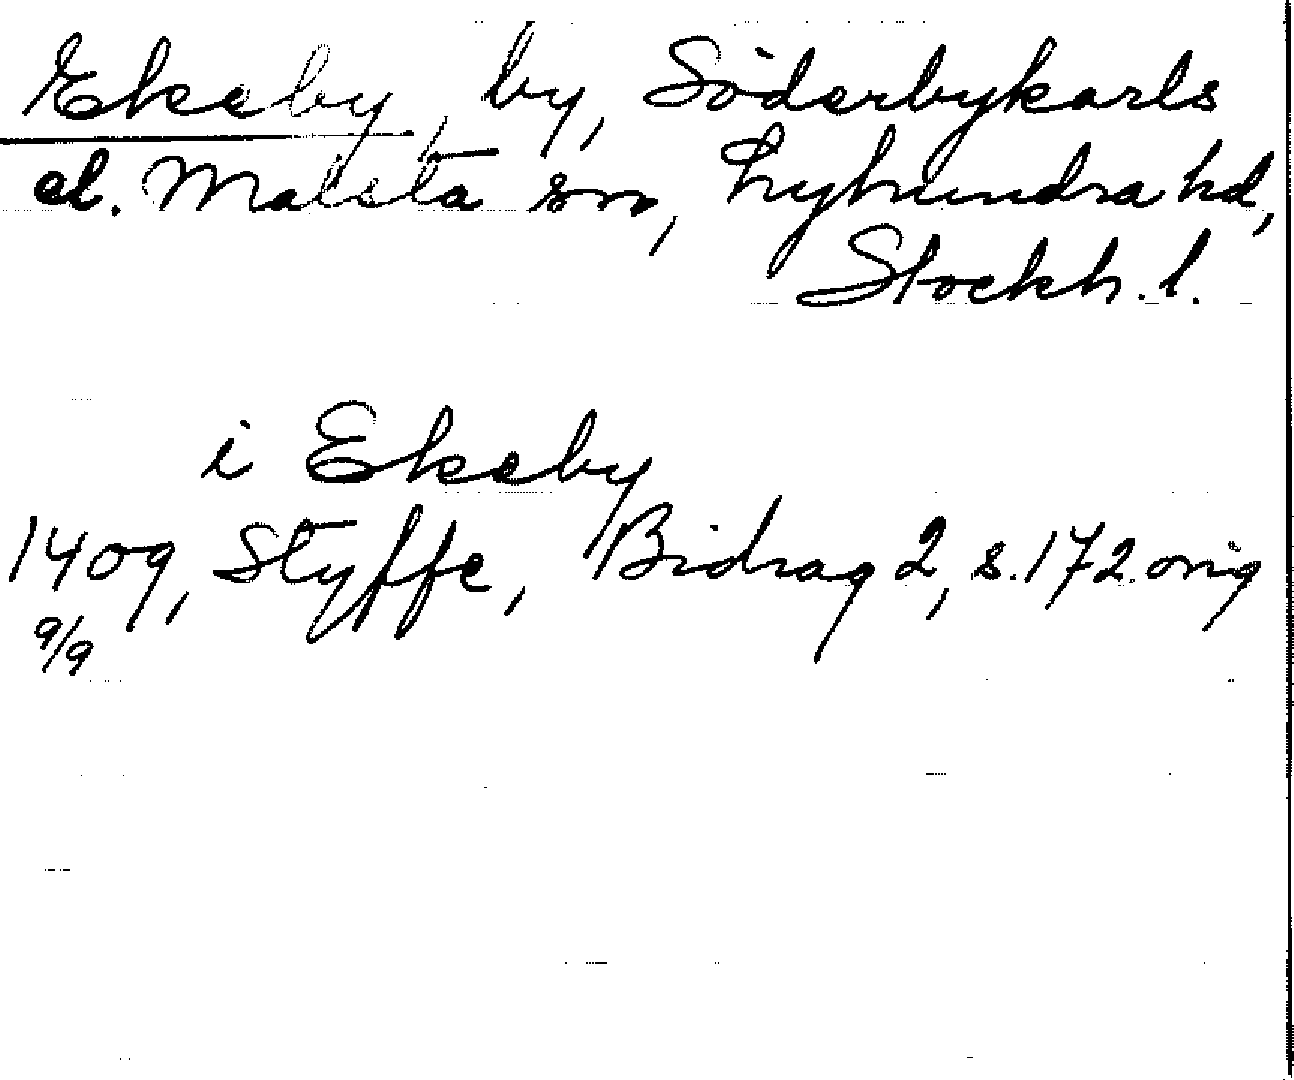 Ekeby, by, Söderbykarls
el. Malsta sn, Lyhundra hd,
Stockh. l.
i Ekeby
1409, Styffe, Bidrag 2, s. 172. orig
9/9